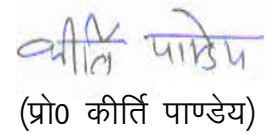 कीर्ति पाण्डेय
(प्रो0 कीर्ति पाण्डेय)